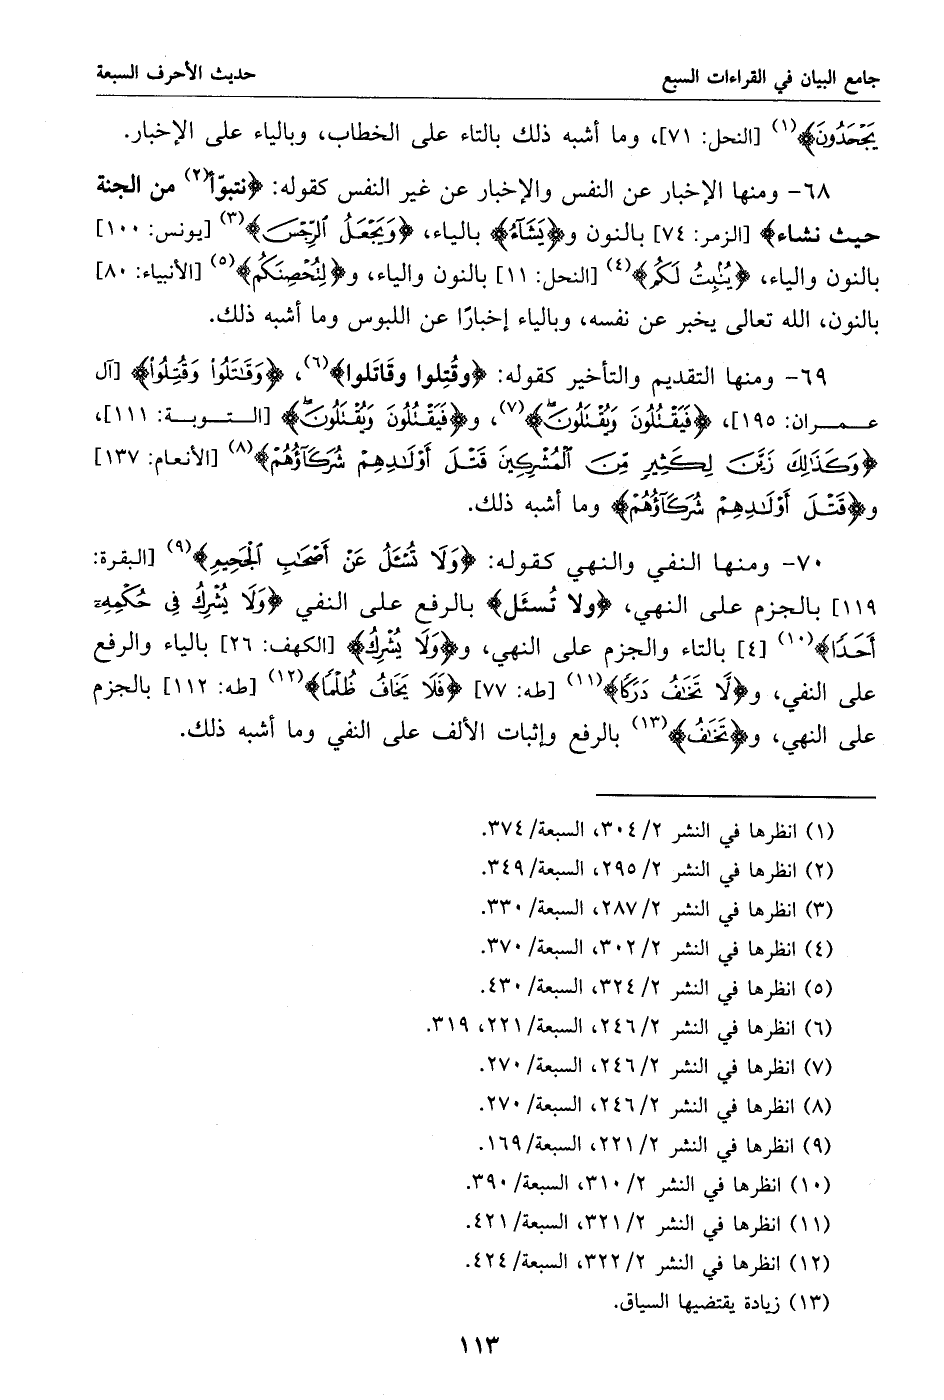 جامع البيان في القراءات السبع
حديث الأحرف السبعة
يَجْحَدُونَ﴾(١) [النحل: ٧١]، وما أشبه ذلك بالتاء على الخطاب، وبالياء على الإخبار.
٦٨- ومنها الإخبار عن النفس والإخبار عن غير النفس كقوله: ﴿نتبوّأ(٢) من الجنة
حيث نشاء﴾ [الزمر: ٧٤] بالنون و﴿يَشَآءُ﴾ بالياء، ﴿وَيَجْعَلُ ٱلرِّجْسَ﴾(٣) [يونس: ١٠٠]
بالنون والياء، ﴿يُنۢبِتُ لَكُم﴾(٤) [النحل: ١١] بالنون والياء، و﴿لِنُحْصِنَكُم﴾(٥) [الأنبياء: ٨٠]
بالنون، الله تعالى يخبر عن نفسه، وبالياء إخبارًا عن اللبوس وما أشبه ذلك.
٦٩- ومنها التقديم والتأخير كقوله: ﴿وقُتِلوا وقَاتَلوا﴾(٦)، ﴿وَقَٰتَلُوا۟ وَقُتِلُوا۟﴾ [آل
عمران: ١٩٥]، ﴿فَيَقْتُلُونَ وَيُقْتَلُونَ ۖ﴾(٧)، و﴿فَيَقْتُلُونَ وَيُقْتَلُونَ ۖ﴾ [التوبة: ١١١]،
﴿وَكَذَٰلِكَ زَيَّنَ لِكَثِيرٍ مِّنَ ٱلْمُشْرِكِينَ قَتْلَ أَوْلَٰدِهِمْ شُرَكَآؤُهُمْ﴾(٨) [الأنعام: ١٣٧]
و﴿قَتْلَ أَوْلَٰدِهِمْ شُرَكَآؤُهُمْ﴾ وما أشبه ذلك.
٧٠- ومنها النفي والنهي كقوله: ﴿وَلَا تُسْـَٔلُ عَنْ أَصْحَٰبِ ٱلْجَحِيمِ﴾(٩) [البقرة:
١١٩] بالجزم على النهي، ﴿ولا تُسئَل﴾ بالرفع على النفي ﴿وَلَا يُشْرِكُ فِى حُكْمِهِۦٓ
أَحَدًا﴾(١٠) [٤] بالتاء والجزم على النهي، و﴿وَلَا يُشْرِكُ﴾ [الكهف: ٢٦] بالياء والرفع
على النفي، و﴿لَّا تَخَٰفُ دَرَكًا﴾(١١) [طه: ٧٧] ﴿فَلَا يَخَافُ ظُلْمًا﴾(١٢) [طه: ١١٢] بالجزم
على النهي، و﴿تَخَٰفُ﴾(١٣) بالرفع وإثبات الألف على النفي وما أشبه ذلك.
(١) انظرها في النشر ٢/ ٣٠٤، السبعة/ ٣٧٤.
(٢) انظرها في النشر ٢/ ٢٩٥، السبعة/ ٣٤٩.
(٣) انظرها في النشر ٢/ ٢٨٧، السبعة/ ٣٣٠.
(٤) انظرها في النشر ٢/ ٣٠٢، السبعة/ ٣٧٠.
(٥) انظرها في النشر ٢/ ٣٢٤، السبعة/ ٤٣٠.
(٦) انظرها في النشر ٢/ ٢٤٦، السبعة/ ٢٢١، ٣١٩.
(٧) انظرها في النشر ٢/ ٢٤٦، السبعة/ ٢٧٠.
(٨) انظرها في النشر ٢/ ٢٤٦، السبعة/ ٢٧٠.
(٩) انظرها في النشر ٢/ ٢٢١، السبعة/ ١٦٩.
(١٠) انظرها في النشر ٢/ ٣١٠، السبعة/ ٣٩٠.
(١١) انظرها في النشر ٢/ ٣٢١، السبعة/ ٤٢١.
(١٢) انظرها في النشر ٢/ ٣٢٢، السبعة/ ٤٢٤.
(١٣) زيادة يقتضيها السياق.
١١٣